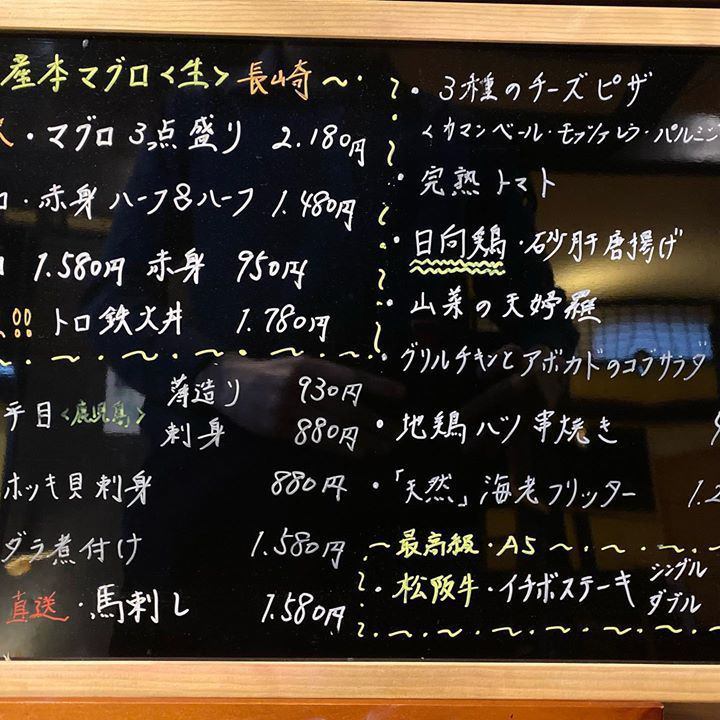 産本マグロ〈生〉長崎〜・
・マグロ3点盛り 2.180円
・赤身ハーフ&ハーフ 1.480円
1.580円 赤身 950円
!! トロ鉄火丼 1.780円
平目〈鹿児島〉 薄造り 930円
刺身 880円
ホッキ貝刺身 880円
ダラ煮付け 1.580円
直送・馬刺し 1.580円
・3種のチーズピザ
〈カマンベール・モッツァレラ・パルミジ
・完熟トマト
・日向鶏・砂肝唐揚げ
・山菜の天婦羅
グリルチキンとアボカドのコブサラダ
・地鶏ハツ串焼き
・「天然」海老フリッター 1.2
〜最高級・A5〜
・松阪牛・イチボステーキ シングル
ダブル